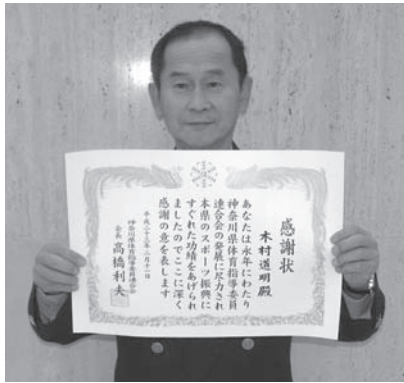 感謝状
木村道明殿
あなたは永年にわたり
神奈川県体育指導委員
連合会の発展に尽力され
本県のスポーツ振興に
すぐれた功績をあげられ
ましたのでここに深く
感謝の意を表します
平成二十三年二月十一日
神奈川県体育指導委員連合会
会長 高橋利夫